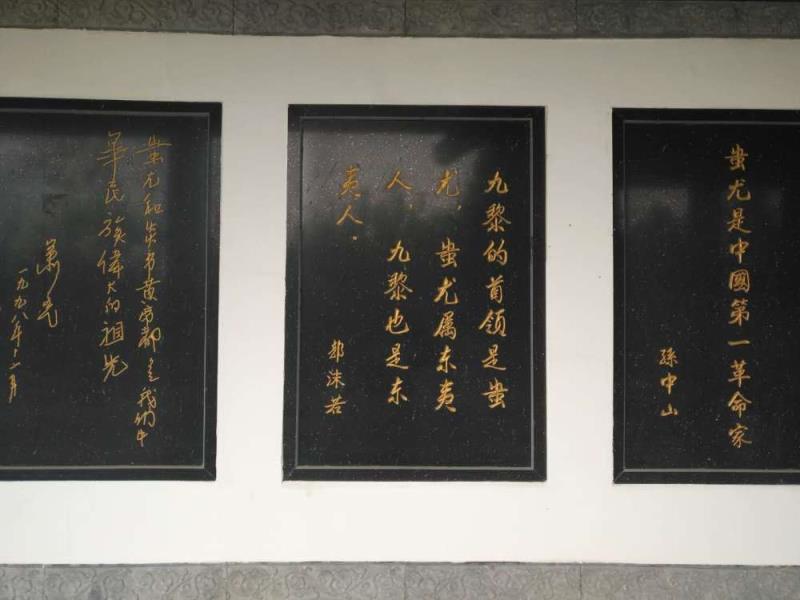 蚩尤是中國第一革命家
孫中山
九黎的首领是蚩
尤，蚩尤属东夷
人，九黎也是东
夷人．
郭沫若
蚩尤和炎帝黄帝都是我们中
華民族偉大的祖先
萧克
一九九八年十一月